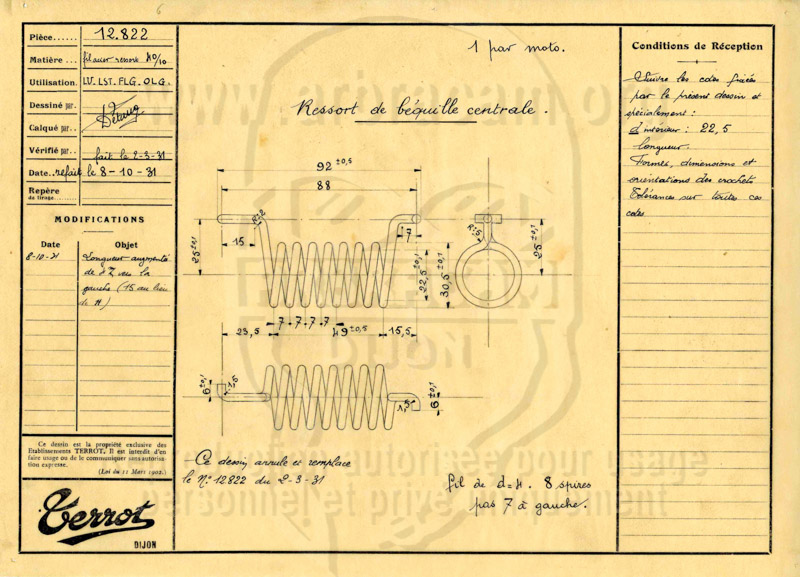 Pièce...... 12.822
Matière... fil acier ressort 40/10
Utilisation. LU. LST. FLG. OLG.
Dessiné par.
Calqué par..
Vérifié par.. fait le 2-3-31
Date.. refait le 8-10-31
Repère
de tirage
MODIFICATIONS
Date Objet
8-10-31 Longueur augmentée
de 4 vers la
gauche (15 au lieu
de 11)
Ce dessin est la propriété exclusive des
Etablissements TERROT. Il est interdit d'en
faire usage ou de le communiquer sans autorisa-
tion expresse.
(Loi du 11 Mars 1902.)
Terrot
DIJON
1 par moto.
Ressort de béquille centrale.
92 ±0,5
88
R=2
15
7
25 ±0,1
22,5 ±0,1
30,5 ±0,1
R=5
25 ±0,1
7 7 7 7
23,5
49 ±0,5
15,5
6 ±0,1
1,5
1,5
6 ±0,1
Ce dessin annule et remplace
le N° 12822 du 2-3-31
fil de d=4. 8 spires
pas 7 à gauche.
Conditions de Réception
Suivre les cotes fixées
par le présent dessin et
spécialement:
d intérieur: 22,5
longueur.
Formes, dimensions et
orientations des crochets
Tolérances sur toutes ces
cotes